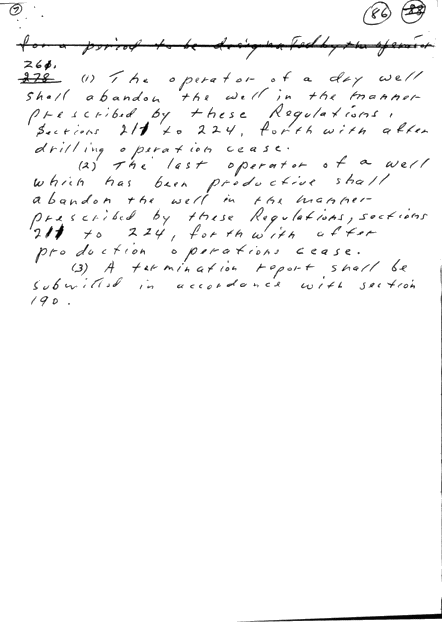 86 88
for a period to be designated by the operator
261.
278 (1) The operator of a dry well
shall abandon the well in the manner
prescribed by these Regulations,
Sections 211 to 224, forthwith after
drilling operation cease.
(2) The last operator of a well
which has been productive shall
abandon the well in the manner
prescribed by these Regulations, sections
211 to 224, forthwith after
production operations cease.
(3) A termination report shall be
submitted in accordance with section
190.